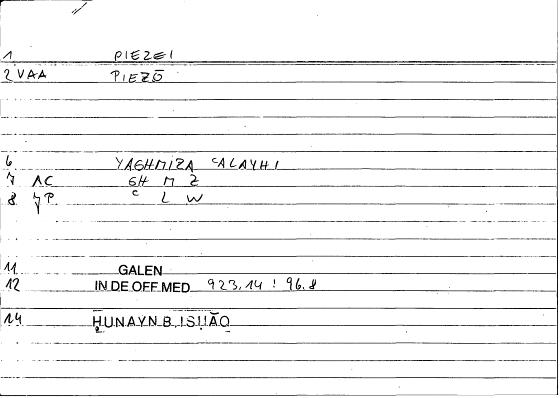 1 PIEZEI
2 VAA PIEZŌ
6 YAGHMIZA ʿALAYHI
7 AC GH M Z
8 JP ʿ L W
11 GALEN
12 IN DE OFF.MED 923.14 : 96.8
14 ḤUNAYN B. ISḤĀQ